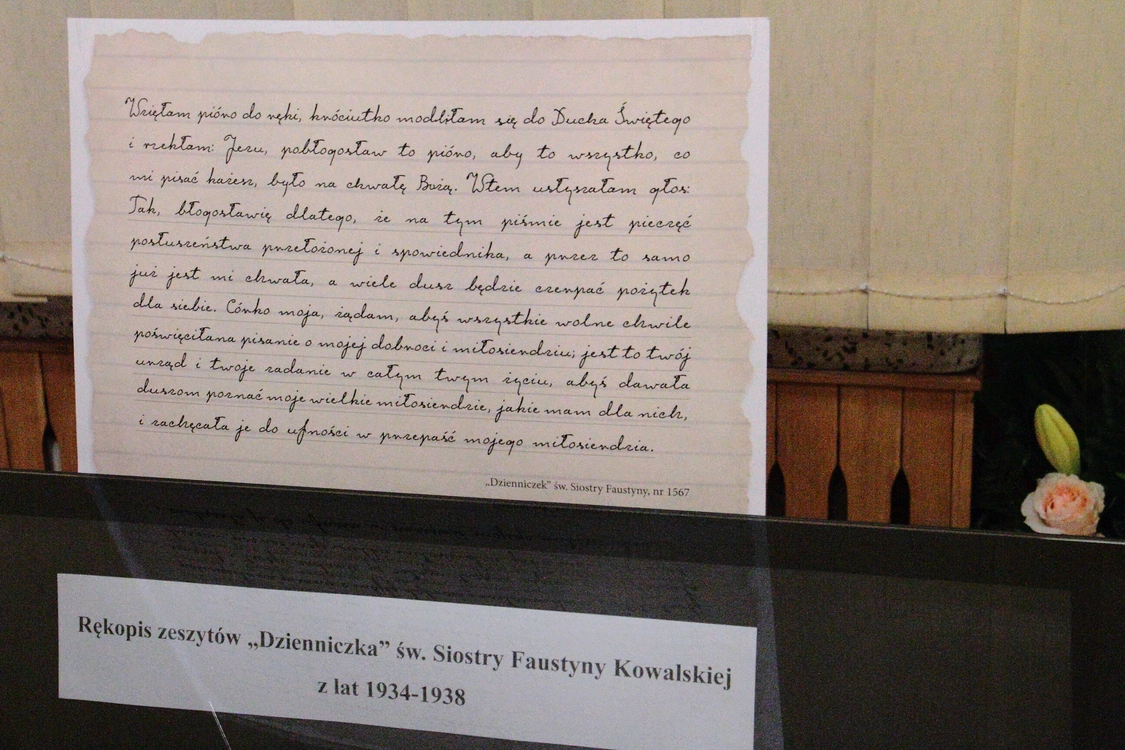 Wzięłam pióro do ręki, króciutko modliłam się do Ducha Świętego
i rzekłam: Jezu, pobłogosław to pióro, aby to wszystko, co
mi pisać każesz, było na chwałę Bożą. Wtem usłyszałam głos:
Tak, błogosławię dlatego, że na tym piśmie jest pieczęć
posłuszeństwa przełożonej i spowiednika, a przez to samo
już jest mi chwała, a wiele dusz będzie czerpać pożytek
dla siebie. Córko moja, żądam, abyś wszystkie wolne chwile
poświęciła na pisanie o mojej dobroci i miłosierdziu; jest to twój
urząd i twoje zadanie w całym twym życiu, abyś dawała
duszom poznać moje wielkie miłosierdzie, jakie mam dla nich,
i zachęcała je do ufności w przepaść mojego miłosierdzia.
„Dzienniczek” św. Siostry Faustyny, nr 1567
Rękopis zeszytów „Dzienniczka” św. Siostry Faustyny Kowalskiej
z lat 1934-1938